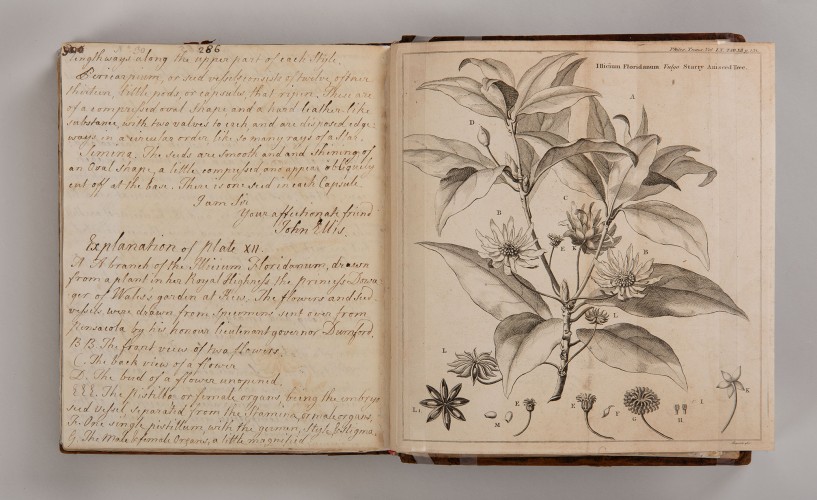 286
lengthways along the upper part of each Style.
Pericarpium, or seed vessels consists of twelve, often
thirteen, little pods, or capsules, that ripen. These are
of a compressed oval shape, and a hard leather-like
substance, with two valves to each, and are disposed edge-
ways in a circular order, like so many rays of a Star.
Semina. The seeds are smooth and and shining of
an Oval shape, a little compressed and appear obliquely
cut off at the base. There is one seed in each Capsule.
I am Sir
Your affectionate friend
John Ellis.
Explanation of Plate XII.
A A branch of the Illicium Floridanum, drawn
from a plant in her Royal Highness, the princess Dowa-
ger of Wales's garden at Kew. The flowers and seed
vessels were drawn from specimens sent over from
Pensacola by his honour lieutenant governor Durnford.
B B. The front views of two flowers.
C. The back view of a flower
D. The bud of a flower unopened.
E E E. The Pistilla or female organs, being the embryo
seed vessel, separated from the Stamina, or male organs,
F. One single pistillum, with the germen, Style & Stigma.
G. The Male & female Organs, a little magnified
Illicium Floridanum Vulgo Starry Aniseed Tree.
A
D
B
C
E
B
L
L
L
E
M
E
F
G
H
I
K